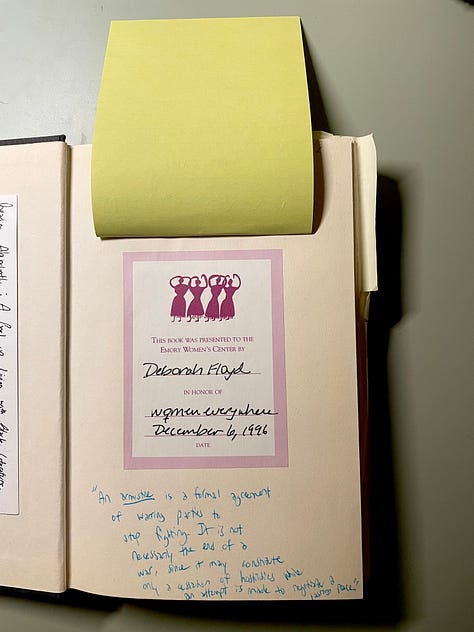 THIS BOOK WAS PRESENTED TO THE
EMORY WOMEN'S CENTER BY
Deborah Floyd
IN HONOR OF
women everywhere
December 6, 1996
DATE
"An armistice is a formal agreement
of warring parties to
stop fighting. It is not
necessarily the end of a
war, since it may constitute
only a cessation of hostilities while
an attempt is made to negotiate a
lasting peace."